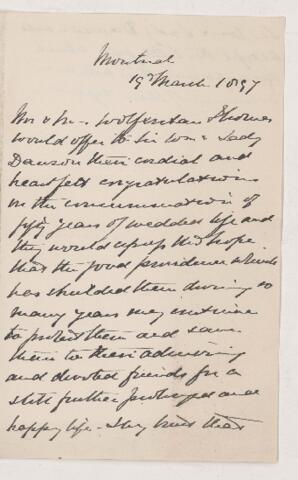 Montreal
19 March 1897
Mr & Mrs Wolferstan Thomas
would offer to Sir Wm & Lady
Dawson their cordial and
heartfelt congratulations
on the consummation of
fifty years of wedded life and
they would express the hope
that the good providence which
has shielded them during so
many years may continue
to protect them and save
them to their admiring
and devoted friends for a
still further prolonged and
happy life - They trust that